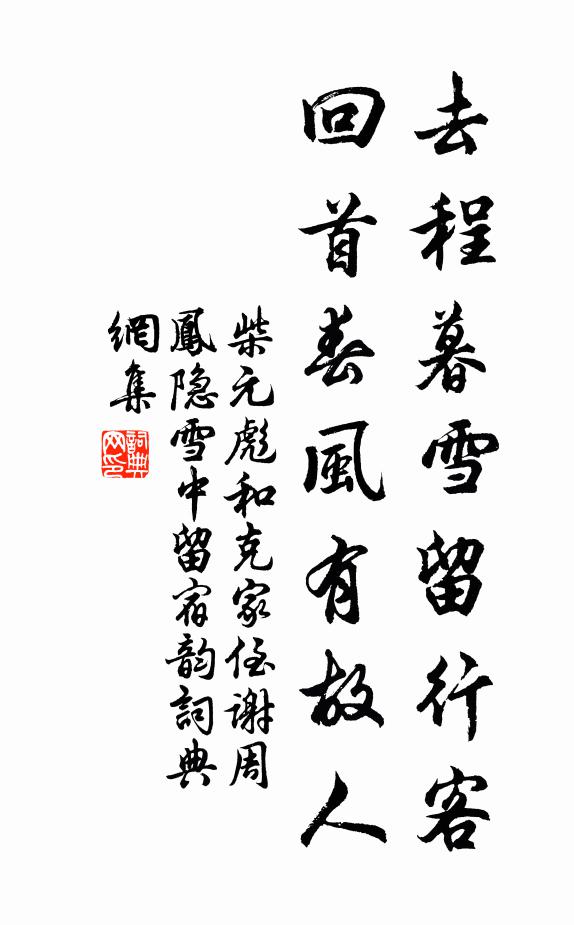 去程暮雪留行客
回首春風有故人
柴元彪和克家侄謝周
鳳隐雪中留宿韵詞典
網集
詞典
网印